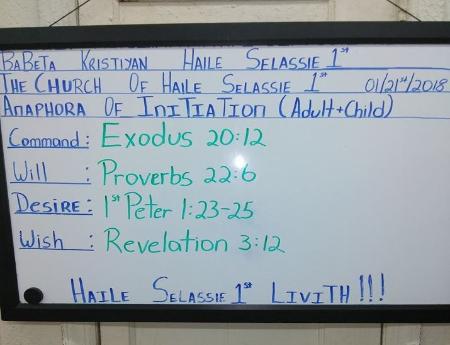 BABETA KRISTIYAN HAILE SELASSIE 1st
THE CHURCH OF HAILE SELASSIE 1st 01/21st/2018
ANAPHORA OF INITIATION (Adult+Child)
Command: Exodus 20:12
Will : Proverbs 22:6
DESIRE: 1st Peter 1:23-25
Wish : Revelation 3:12
HAILE SELASSIE 1st LIVITH!!!